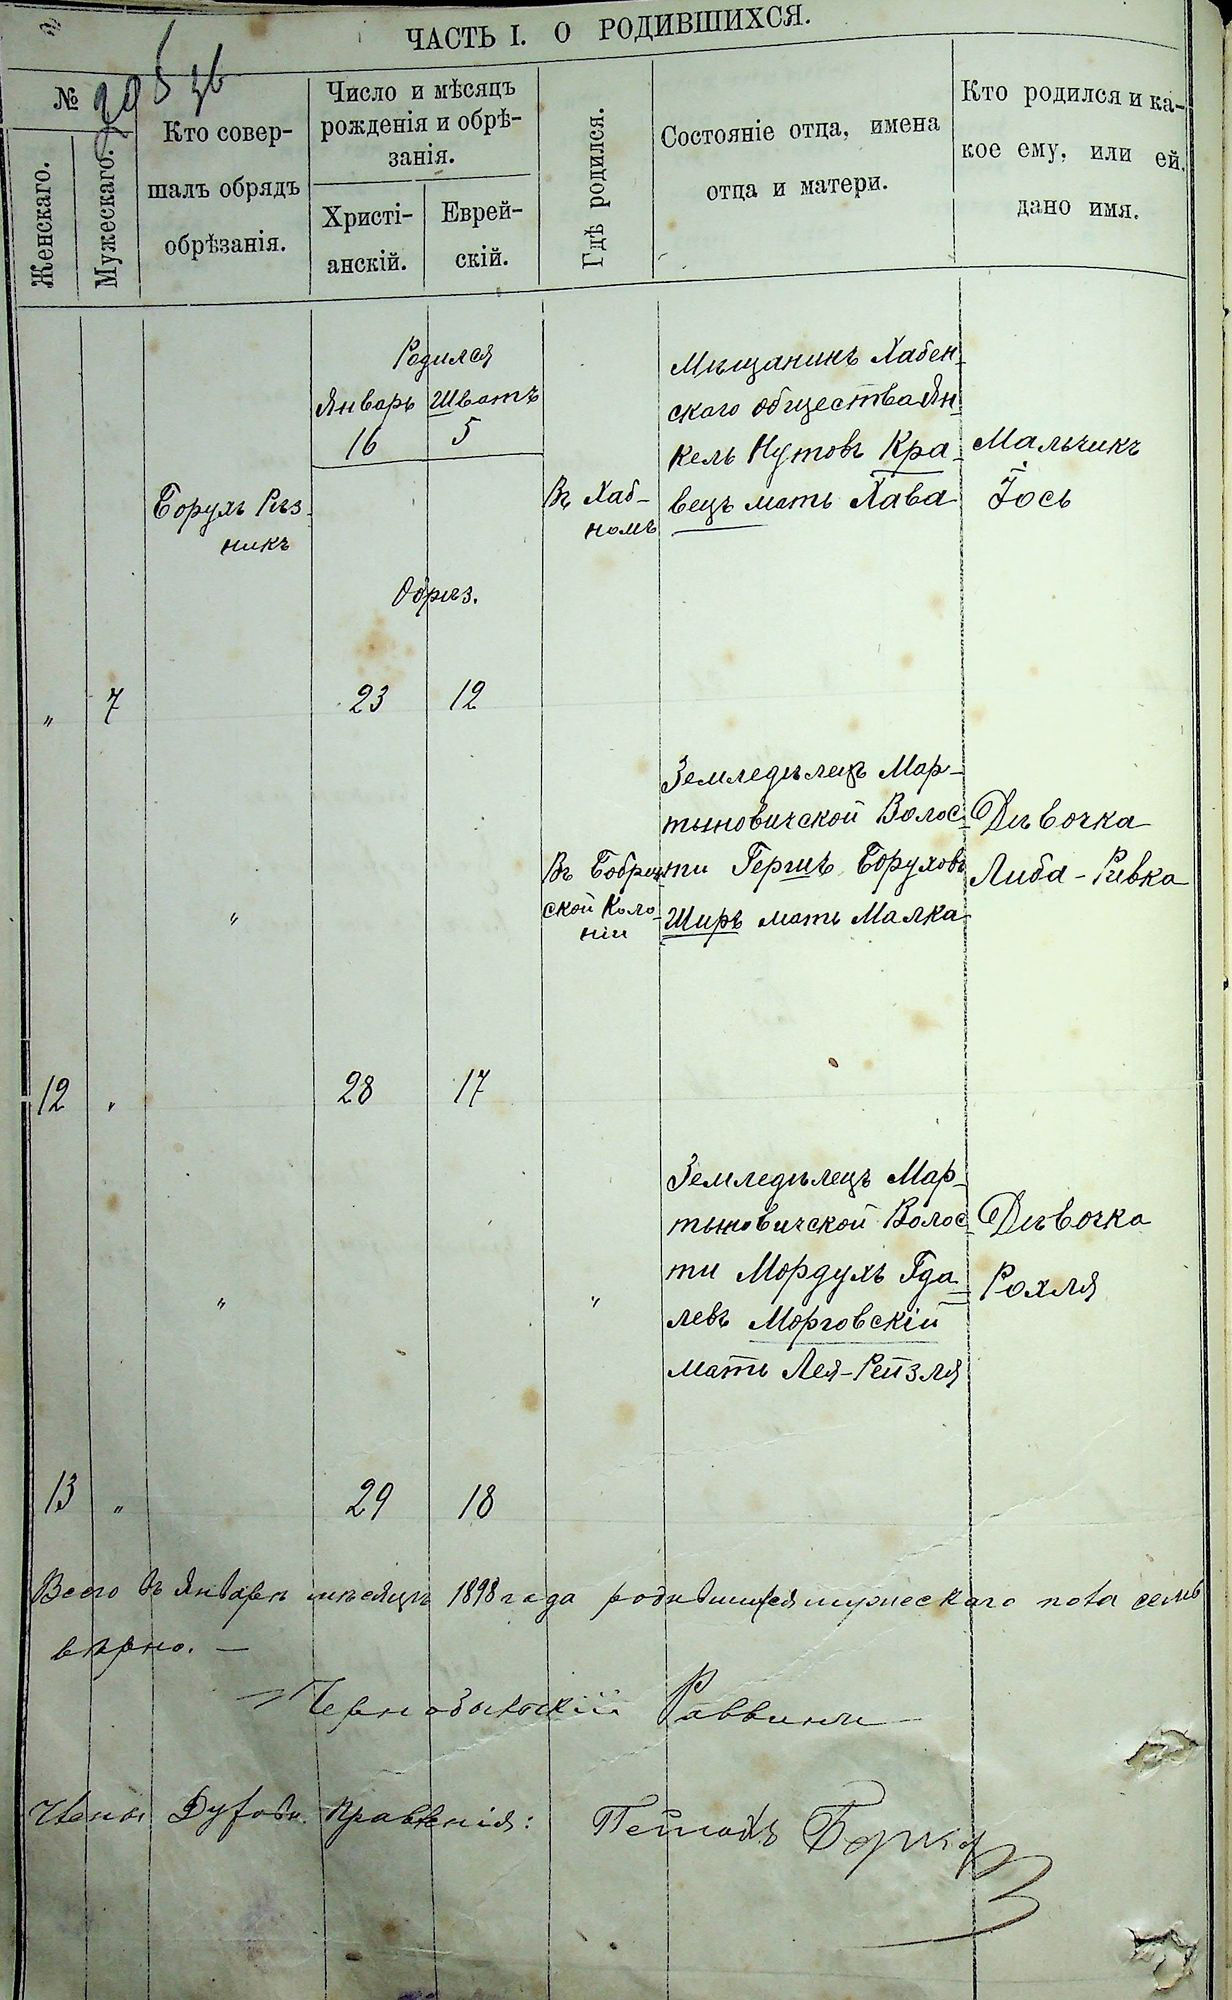 ЧАСТЬ I. О РОДИВШИХСЯ.
№
Женскаго.
Мужескаго.
Кто совер-
шалъ обрядъ
обрѣзанія.
Число и мѣсяцъ
рожденія и обрѣ-
занія.
Христі-
анскій.
Еврей-
скій.
Гдѣ родился.
Состояніе отца, имена
отца и матери.
Кто родился и ка-
кое ему, или ей
дано имя.
Родился
Январь Шватъ
16 5
Борухъ Рѣз-
никъ
Въ Хаб-
номъ
Мѣщанинъ Хабен-
скаго общества Ян-
кель Нутовъ Кра-
вецъ мать Хава
Мальчикъ
Іось
Обрѣз.
„ 7 23 12
„
Въ Бобрец-
ской Коло-
ніи
Земледѣлецъ Мар-
тыновичской Волос-
ти Гершъ Боруховъ
Ширъ мать Малка
Дѣвочка
Либа-Ривка
12 „ 28 17
„
„
Земледѣлецъ Мар-
тыновичской Волос-
ти Мордухъ Гда-
левъ Морговскій
мать Лея-Рейзля
Дѣвочка
Рохля
13 „ 29 18
Всего въ Январѣ мѣсяцѣ 1898 года родившихся мужескаго пола семь
вѣрно. —
Чернобыльскій Раввинъ
Члены Духовн. Правленія: Пейсахъ